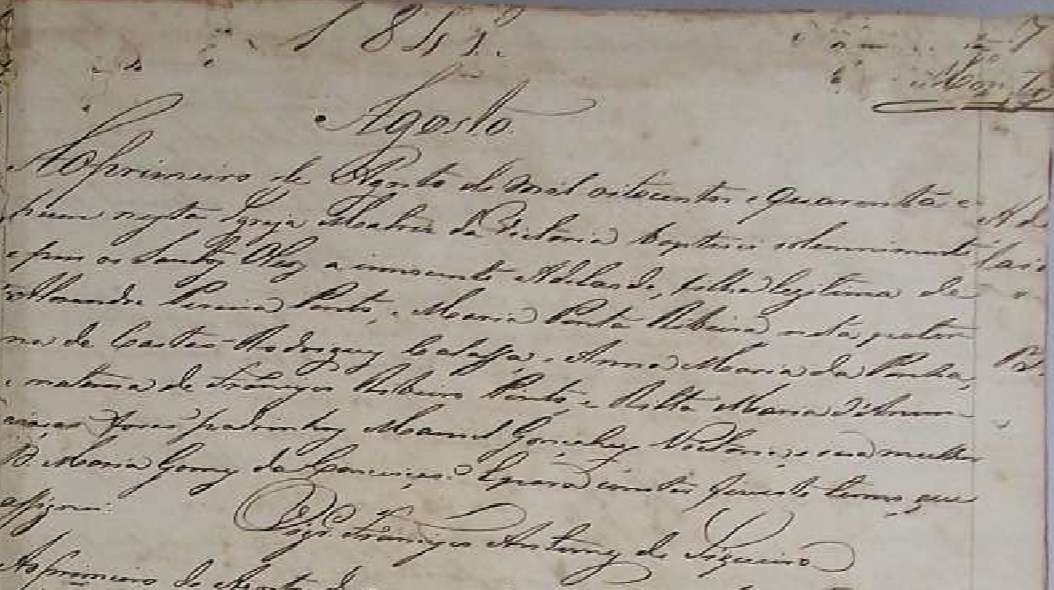 1841.
7
Agosto
Ao primeiro de Agosto de mil oitocentos e quarenta e
hum nesta Igreja Matriz da Victoria baptisei solemnemente
e pus os Santos Oleos a innocente Adelaide, filha legitima de
Alexandre Pereira Pinto, e Maria Pinta Ribeira neta pater
na de Caetano Rodrigues e Anna Maria da Penha,
e materna de Francisco Ribeiro Pinto, e Ritta Maria
forão padrinhos Manoel Gonçalves e sua mulher
D. Maria Gomes da Conceição. E para constar fiz este termo, que
assignei.
Vigr.º Francisco Antunes de Siqueira
Ao primeiro de Agosto de